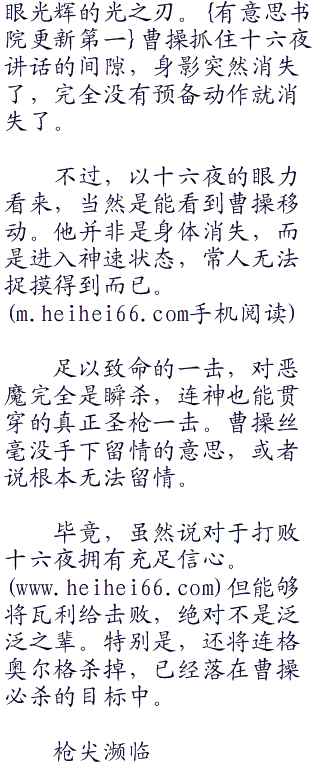 眼光辉的光之刃。{有意思书
院更新第一}曹操抓住十六夜
讲话的间隙，身影突然消失
了，完全没有预备动作就消
失了。
不过，以十六夜的眼力
看来，当然是能看到曹操移
动。他并非是身体消失，而
是进入神速状态，常人无法
捉摸得到而已。
(m.heihei66.com手机阅读)
足以致命的一击，对恶
魔完全是瞬杀，连神也能贯
穿的真正圣枪一击。曹操丝
毫没手下留情的意思，或者
说根本无法留情。
毕竟，虽然说对于打败
十六夜拥有充足信心。
(www.heihei66.com)但能够
将瓦利给击败，绝对不是泛
泛之辈。特别是，还将连格
奥尔格杀掉，已经落在曹操
必杀的目标中。
枪尖濒临